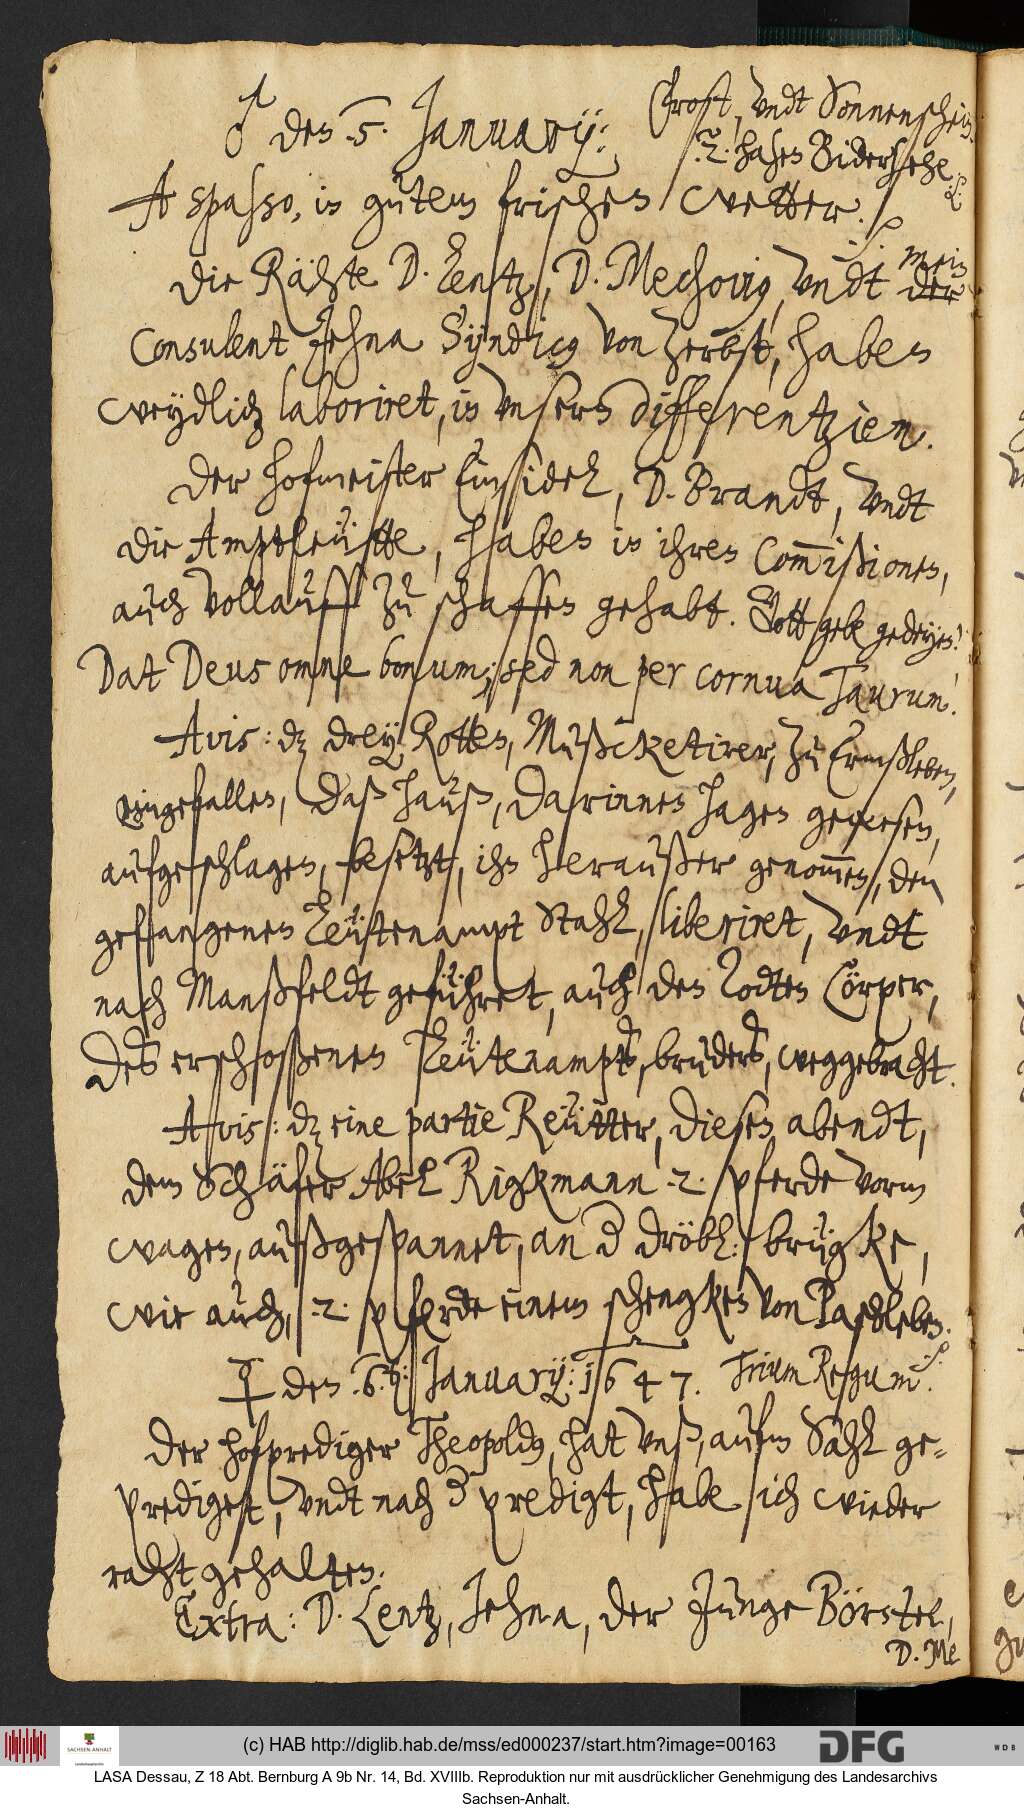 ♂ den .5. Januarij:
Frost, vndt Sonnenschein
.2. hasen Bidersehe
A spasso, in gutem frischen wetter.
Die Rähte D. Lentz, D. Mechovig, vndt mein der
Consulent Jehna Syndicg von Zerbst, haben
weydlich laboriret, in vnsern differentzien.
Der hofmeister Einsidel, D. Brandt, vndt
die Amptleütte, haben in ihren Commißionen,
auch vollauff zu schaffen gehabt. Gott gebe gedeyen!
Dat Deus omne bonum; sed non per cornua Taurum!
Avis: dz drey Rotten, Mußcketirer, zu Ermßleben,
eingefallen, daß hauß, darinnen Jagen gewesen,
aufgeschlagen, besetzt, ihn heraußer genommen, den
geffangenen Leütenampt Stahl, liberiret, vndt
nach Manßfeldt geführet, auch den Todten Cörper,
des erschoßenen Leütenampts, bruders, weggebracht.
Avis: dz eine partie Reütter, diesen abendt,
dem Schäfer Abel Rigkmann .2. pferde vorm
wagen, außgespannet, an d dröbl: brügke,
wie auch, .2. pferde einem schengken von Paschleben.
☿ den .6. Januarij: 1647. Trium Regum.
Der hofprediger Theopoldg, hat vnß, aufm Sahl ge-
prediget, vndt nach d predigt, habe ich wieder
raht gehalten.
Extra: D. Lentz, Jehna, der Junge Börstel,
D. Me
(c) HAB http://diglib.hab.de/mss/ed000237/start.htm?image=00163
SACHSEN-ANHALT
DFG
WDB
LASA Dessau, Z 18 Abt. Bernburg A 9b Nr. 14, Bd. XVIIIb. Reproduktion nur mit ausdrücklicher Genehmigung des Landesarchivs
Sachsen-Anhalt.